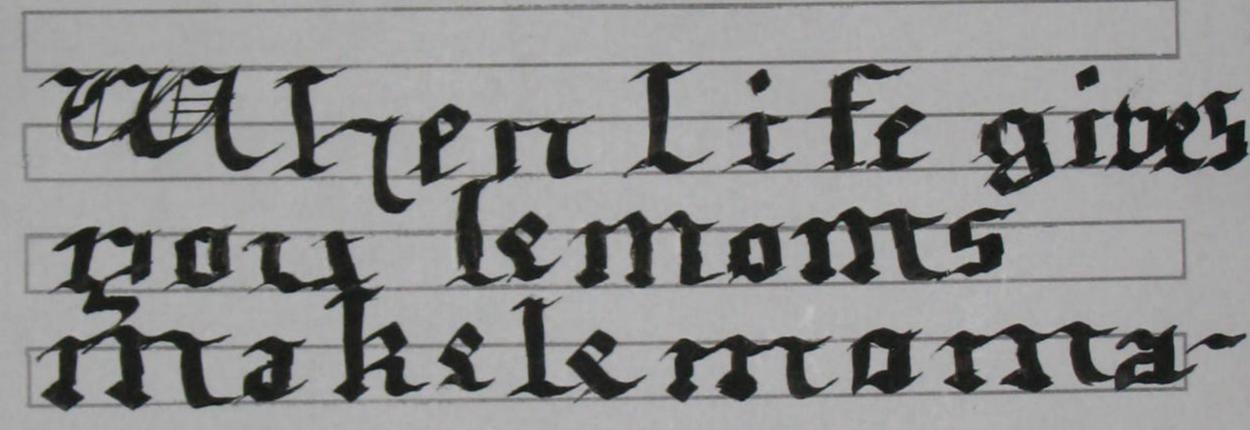 When life gives
you lemoms
make lemoma-